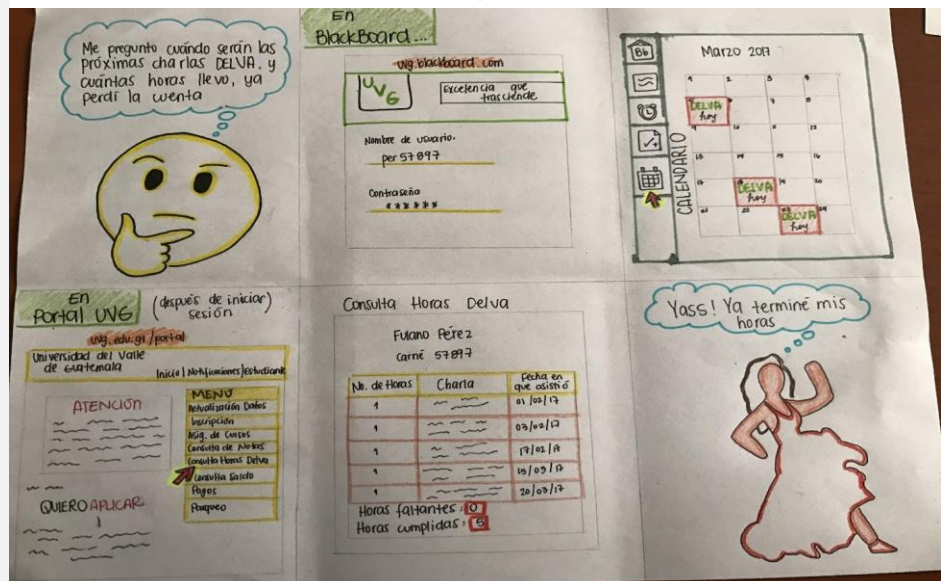 Me pregunto cuándo serán las
próximas charlas DELVA, y
cuántas horas llevo, ya
perdí la cuenta
En
BlackBoard...
uvg.blackboard.com
UVG
Excelencia que
trasciende
Nombre de usuario.
per57897
Contraseña
******
Bb
CALENDARIO
Marzo 2017
DELVA
hoy
DELVA
hoy
DELVA
hoy
En
Portal UVG
(después de iniciar)
sesión
uvg.edu.gt/portal
Universidad del Valle
de Guatemala
Inicio | Notificaciones | Estudiante
ATENCIÓN
QUIERO APLICAR
MENÚ
Actualización Datos
Inscripción
Asig. de Cursos
Consulta de Notas
Consulta Horas Delva
Consulta Saldo
Pagos
Parqueo
Consulta Horas Delva
Fulano Pérez
Carné 57897
No. de Horas Charla Fecha en
que asistió
1 01/02/17
1 03/02/17
1 17/02/17
1 15/03/17
1 20/03/17
Horas faltantes: 0
Horas cumplidas: 5
Yass! Ya terminé mis
horas